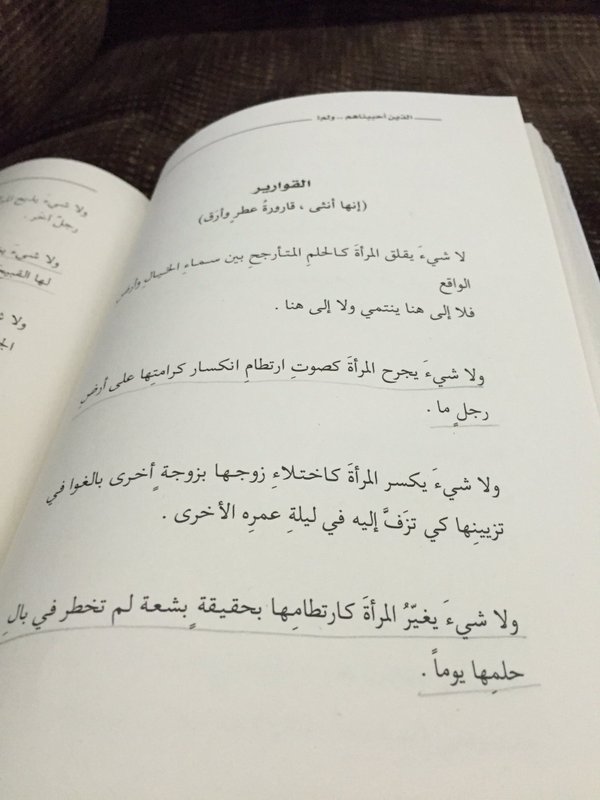 الذين أحببناهم ... ولم!
القوارير
(إنها أنثى ، قارورةُ عطرٍ وأرَق)
لا شيءَ يقلق المرأةَ كالحلمِ المتأرجحِ بين سماءِ الخيالِ وأرضِ
الواقع
فلا إلى هنا ينتمي ولا إلى هنا .
ولا شيءَ يجرح المرأةَ كصوتِ ارتطامِ انكسار كرامتِها على أرضِ
رجلٍ ما .
ولا شيءَ يكسر المرأةَ كاختلاءِ زوجها بزوجةٍ أخرى بالغوا في
تزيينِها كي تزَفَّ إليه في ليلةِ عمرِه الأخرى .
ولا شيءَ يغيّرُ المرأةَ كارتطامِها بحقيقةٍ بشعة لم تخطر في بالِ
حلمِها يوماً .
ولا شيءَ يذبح
رجلٌ آخر .
ولا شيءَ
لها
ولا